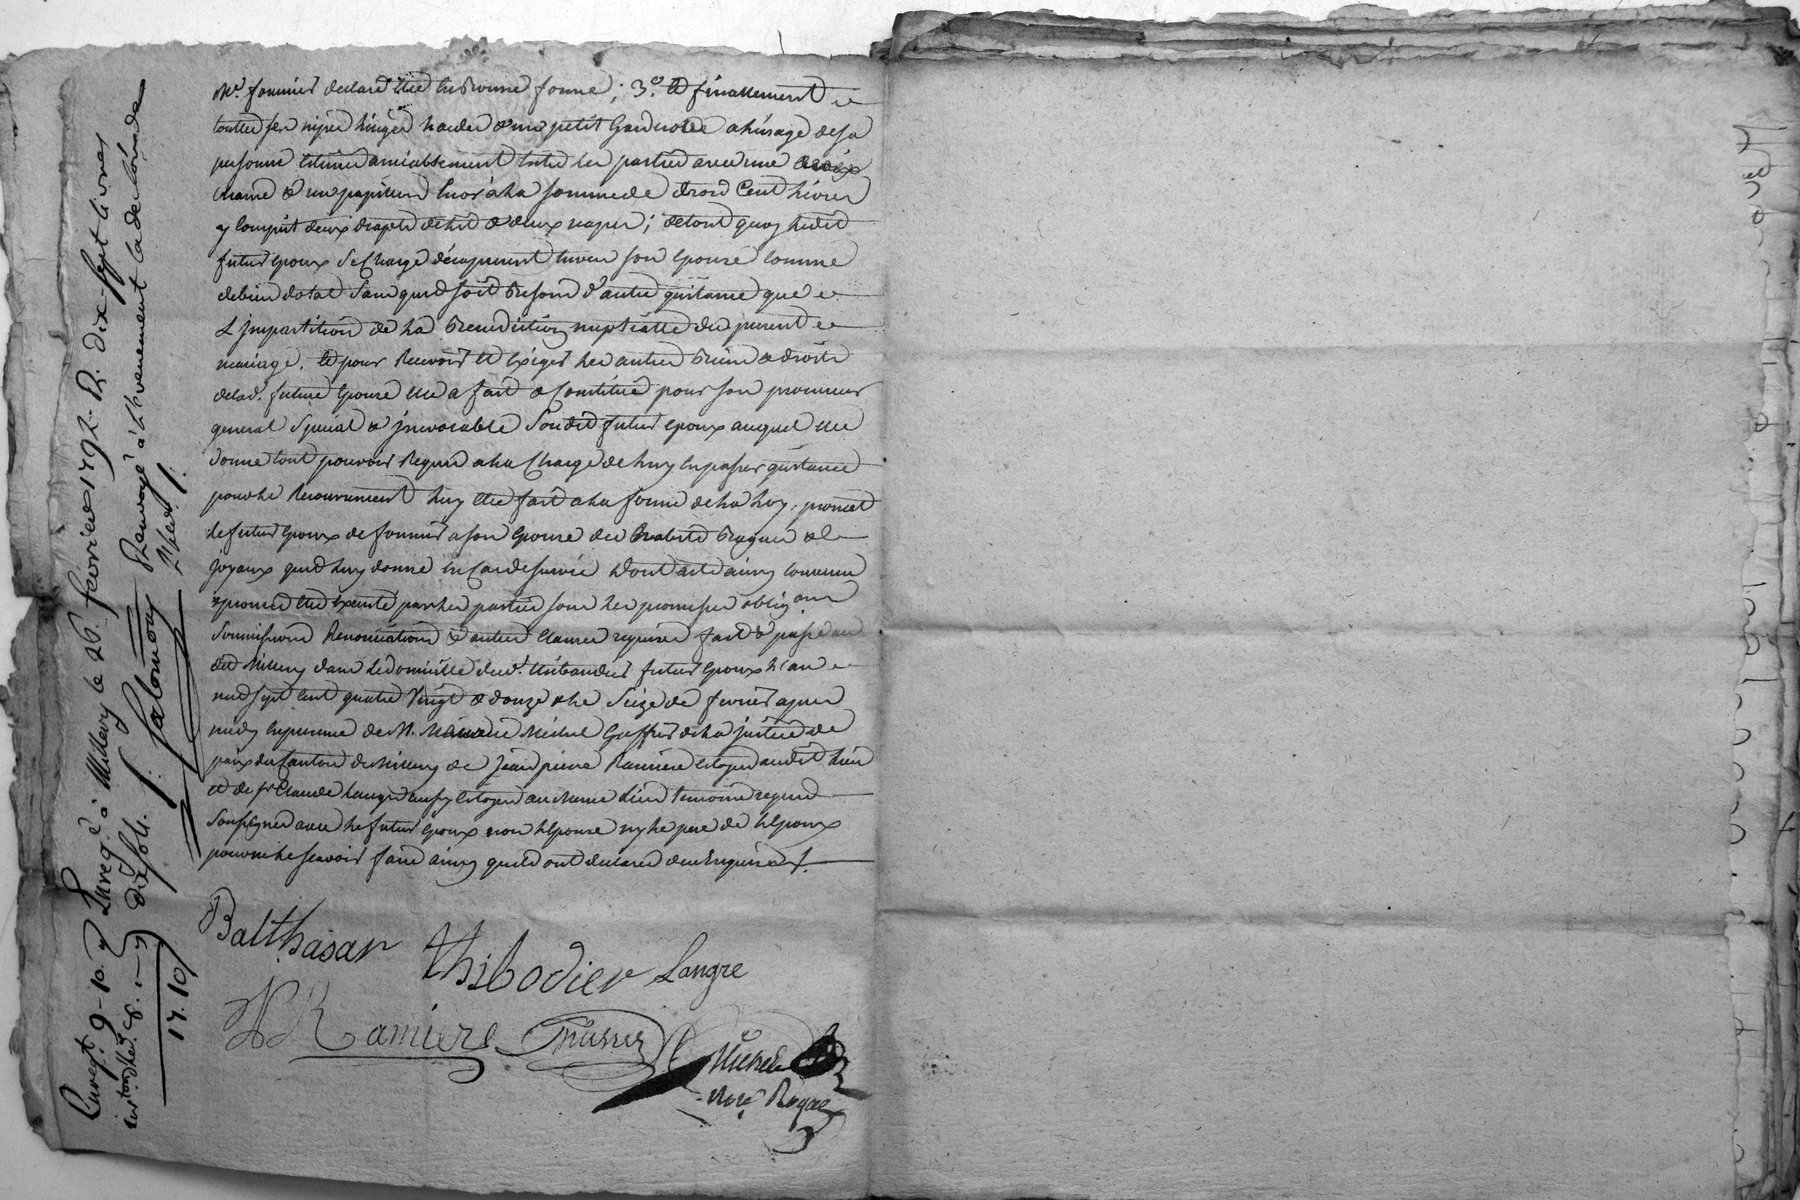 Mr. fournier declaré être en bonne forme ; 3.° et finallement
touttes ses nipes linges hardes & une petit Garderobe a l'usage de sa
personne estimée amiablement entre les parties avec une croix
chaine & un papillon en or à la somme de trois Cent livres
y compris deux draps de lit & deux napes ; de tout quoy ledit
futur epoux Se Charge dès a present envers son epouse comme
de bien dotal Sans quil soit besoin d'autre quitance que
L'impartition de la benediction nuptialle du present
mariage. et pour Recevoir et Exiger les autres biens & droits
de lad. future epouse elle a fait & Constitué pour son procureur
general Special & jrrevocable Sondit futur epoux auquel elle
donne tout pouvoir Requis a la Charge de luy en passer quitance
pour le Recouvrement luy être fait a la forme de la loy. promet
le futur epoux de fournir a son epouse des bagues &
joyaux quil luy donne en Cas de survie Dont acte ainsy convenu
& promis être executé par les parties sous les promesses oblig.ons
Soumissions Renonciations & autres clauses requises fait & passé au
dit Millery dans le domicille dud. thibaudier futur epoux l'an
mil sept cent quatre Vingt & douze & le Seize de fevrier apres
midy en presence de M. Michel Greffier de la justice de
paix du Canton de Millery de Jean pierre Ramiere citoyen audit lieu
et de sr Claude Langre aussy citoyen au meme lieu temoins requis
Soussignés avec le futur epoux non l'Epouse ny le pere de l'Epoux
pour ne le sçavoir faire ainsy quils ont declaré de ce Enquis
Balthasar thibodier Langre
Ramiere Thusser
Michel
Nore Royal
Enregt. 9-10. Enregé. à Millery le 26. fevrier 1792. R. dix-sept livres
dix sols. Renvoyé à l'evenement la declarande
8.
17.10
Salomon